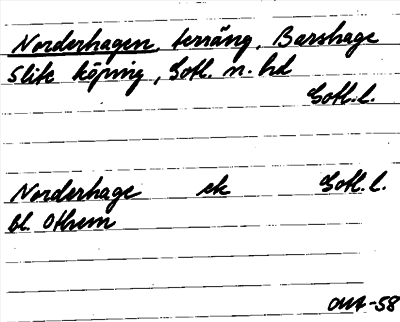 Norderhagen, terräng, Barshage
Slite köping, Gotl. n. hd
Gotl. l.
Norderhage ek Gotl. l.
bl. Othem
-58